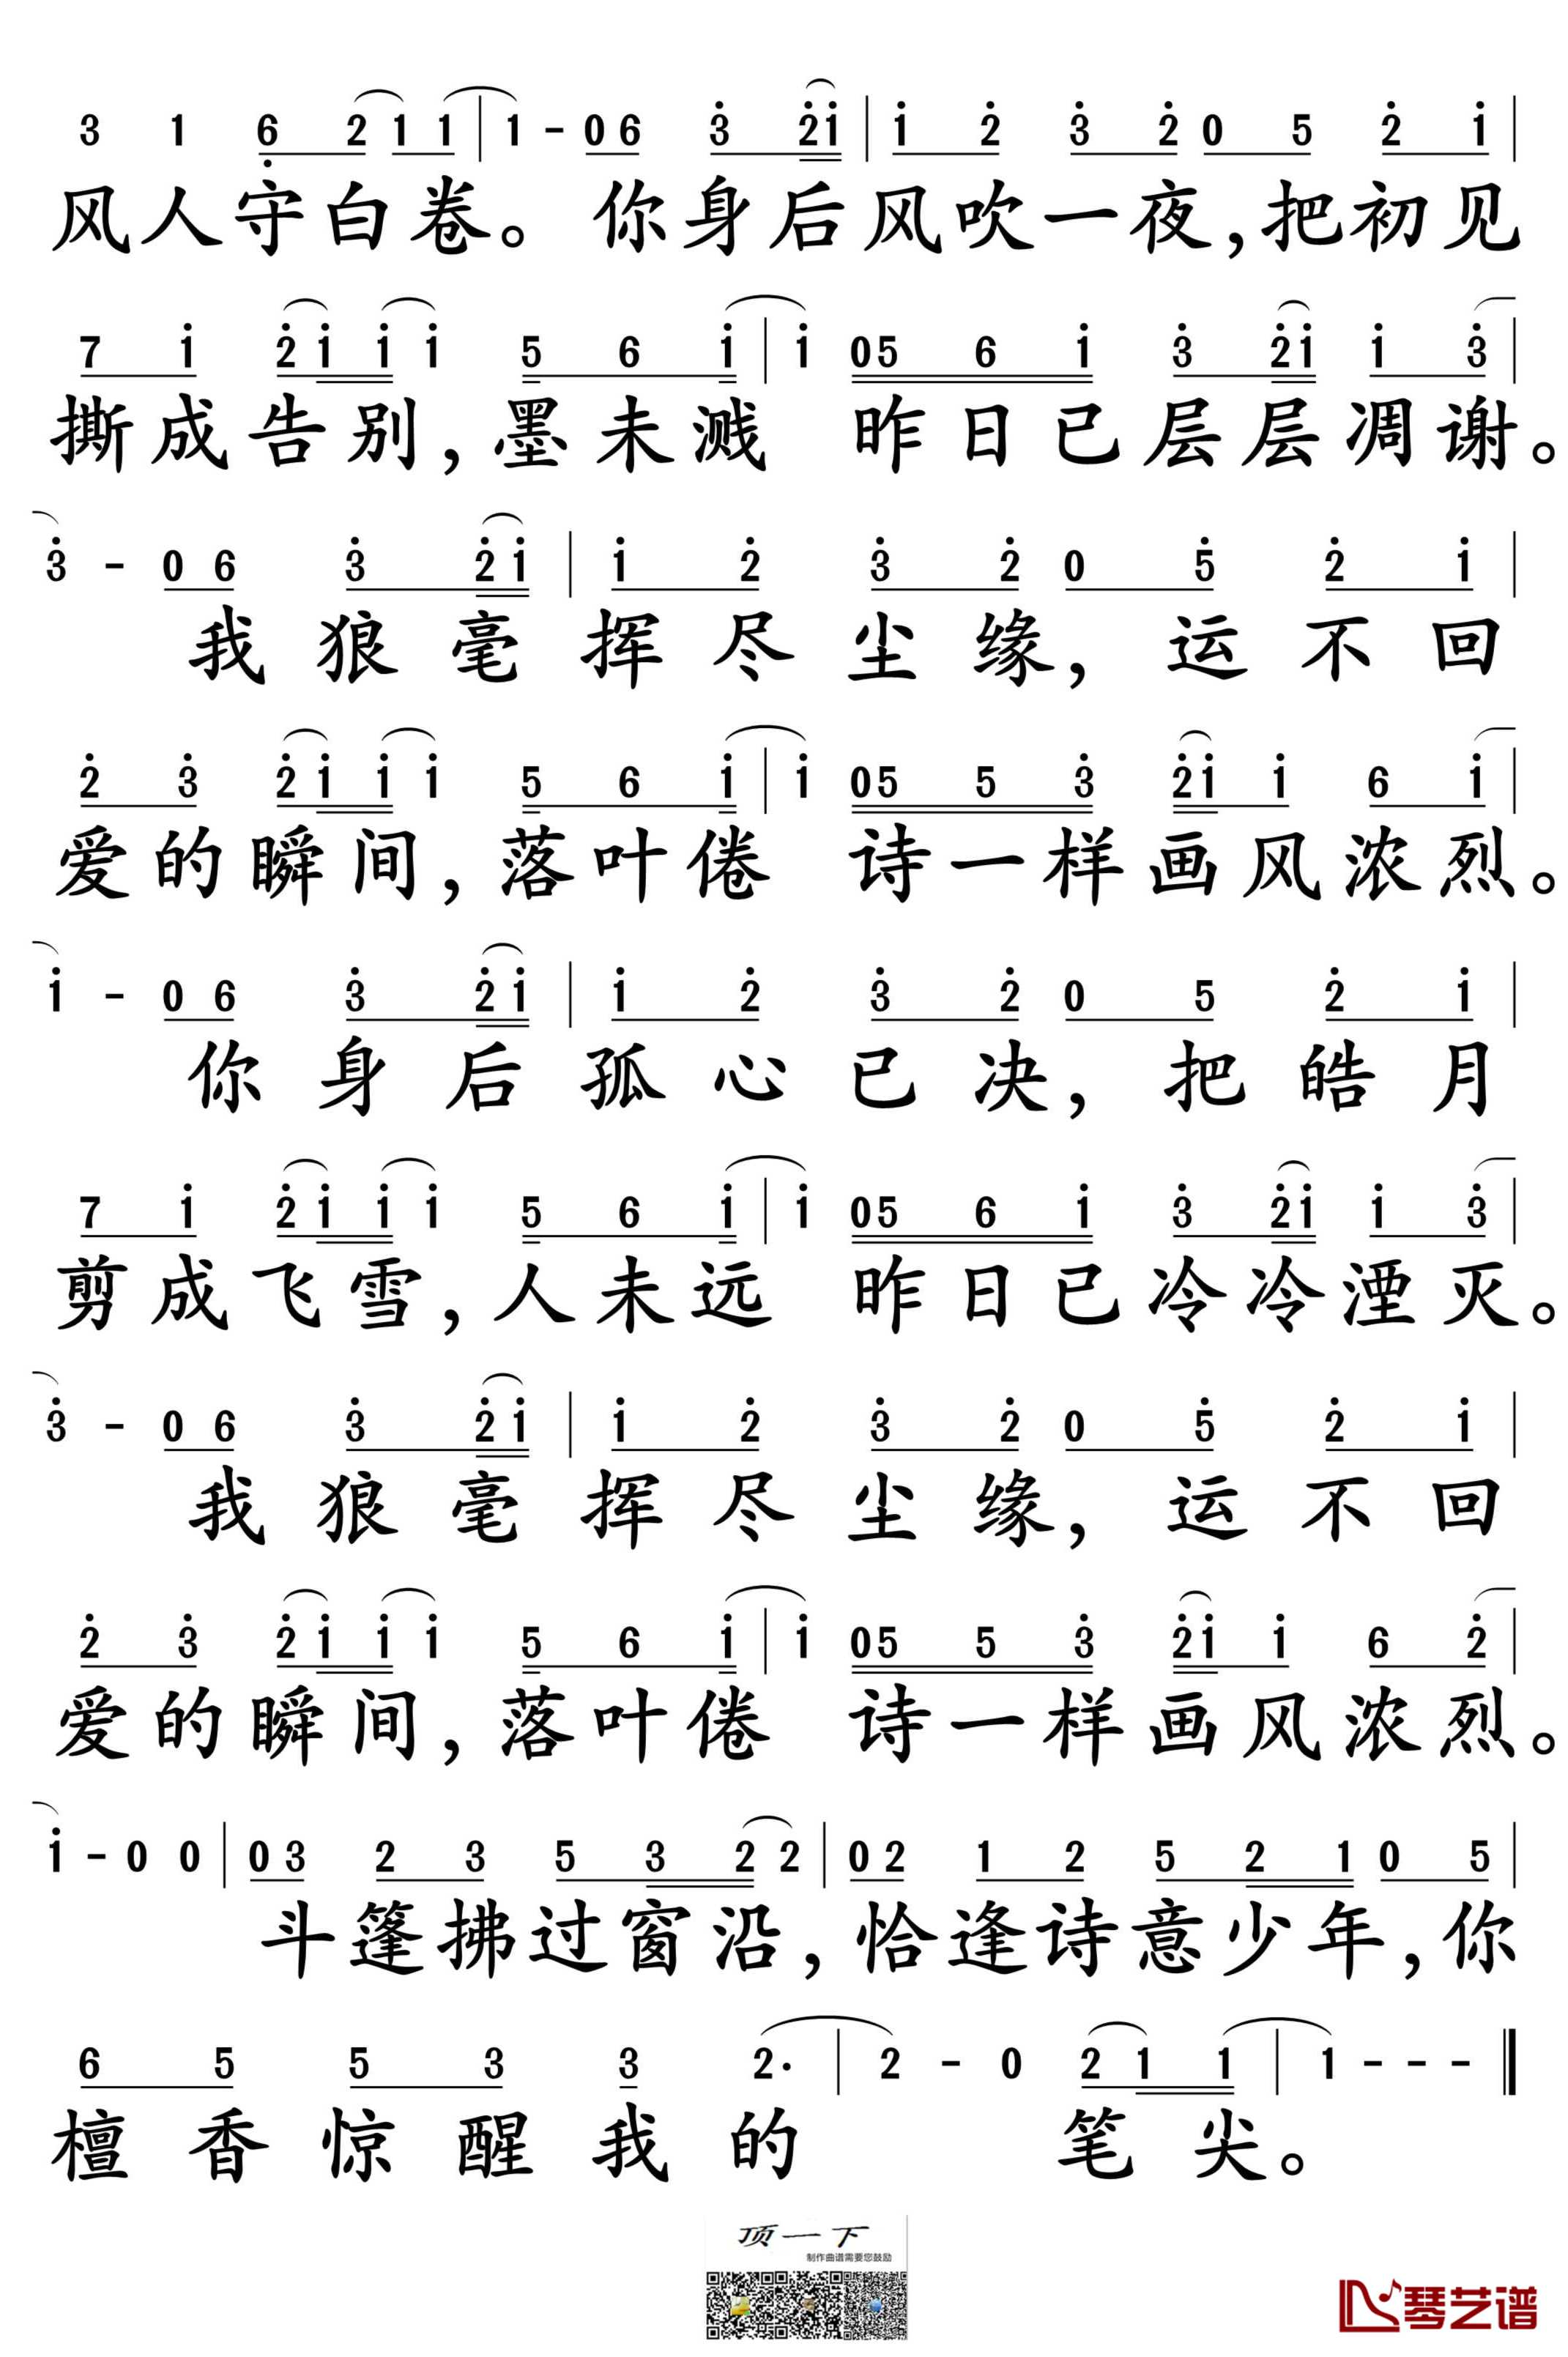 3 1 6 2 1 1 | 1 - 0 6 3 2 1 | 1 2 3 2 0 5 2 1 |
风人守白卷。你身后风吹一夜,把初见
7 1 2 1 1 1 5 6 1 | 1 0 5 6 1 3 2 1 1 3 |
撕成告别,墨未溅 昨日已层层凋谢。
3 - 0 6 3 2 1 | 1 2 3 2 0 5 2 1 |
我狼毫挥尽尘缘,运不回
2 3 2 1 1 1 5 6 1 | 1 0 5 5 3 2 1 1 6 1 |
爱的瞬间,落叶倦 诗一样画风浓烈。
1 - 0 6 3 2 1 | 1 2 3 2 0 5 2 1 |
你身后孤心已决,把皓月
7 1 2 1 1 1 5 6 1 | 1 0 5 6 1 3 2 1 1 3 |
剪成飞雪,人未远 昨日已冷冷湮灭。
3 - 0 6 3 2 1 | 1 2 3 2 0 5 2 1 |
我狼毫挥尽尘缘,运不回
2 3 2 1 1 1 5 6 1 | 1 0 5 5 3 2 1 1 6 2 |
爱的瞬间,落叶倦 诗一样画风浓烈。
1 - 0 0 | 0 3 2 3 5 3 2 2 | 0 2 1 2 5 2 1 0 5 |
斗篷拂过窗沿,恰逢诗意少年,你
6 5 5 3 3 2· | 2 - 0 2 1 1 | 1 - - -
檀香惊醒我的 笔尖。
顶一下
制作曲谱需要您鼓励
琴艺谱